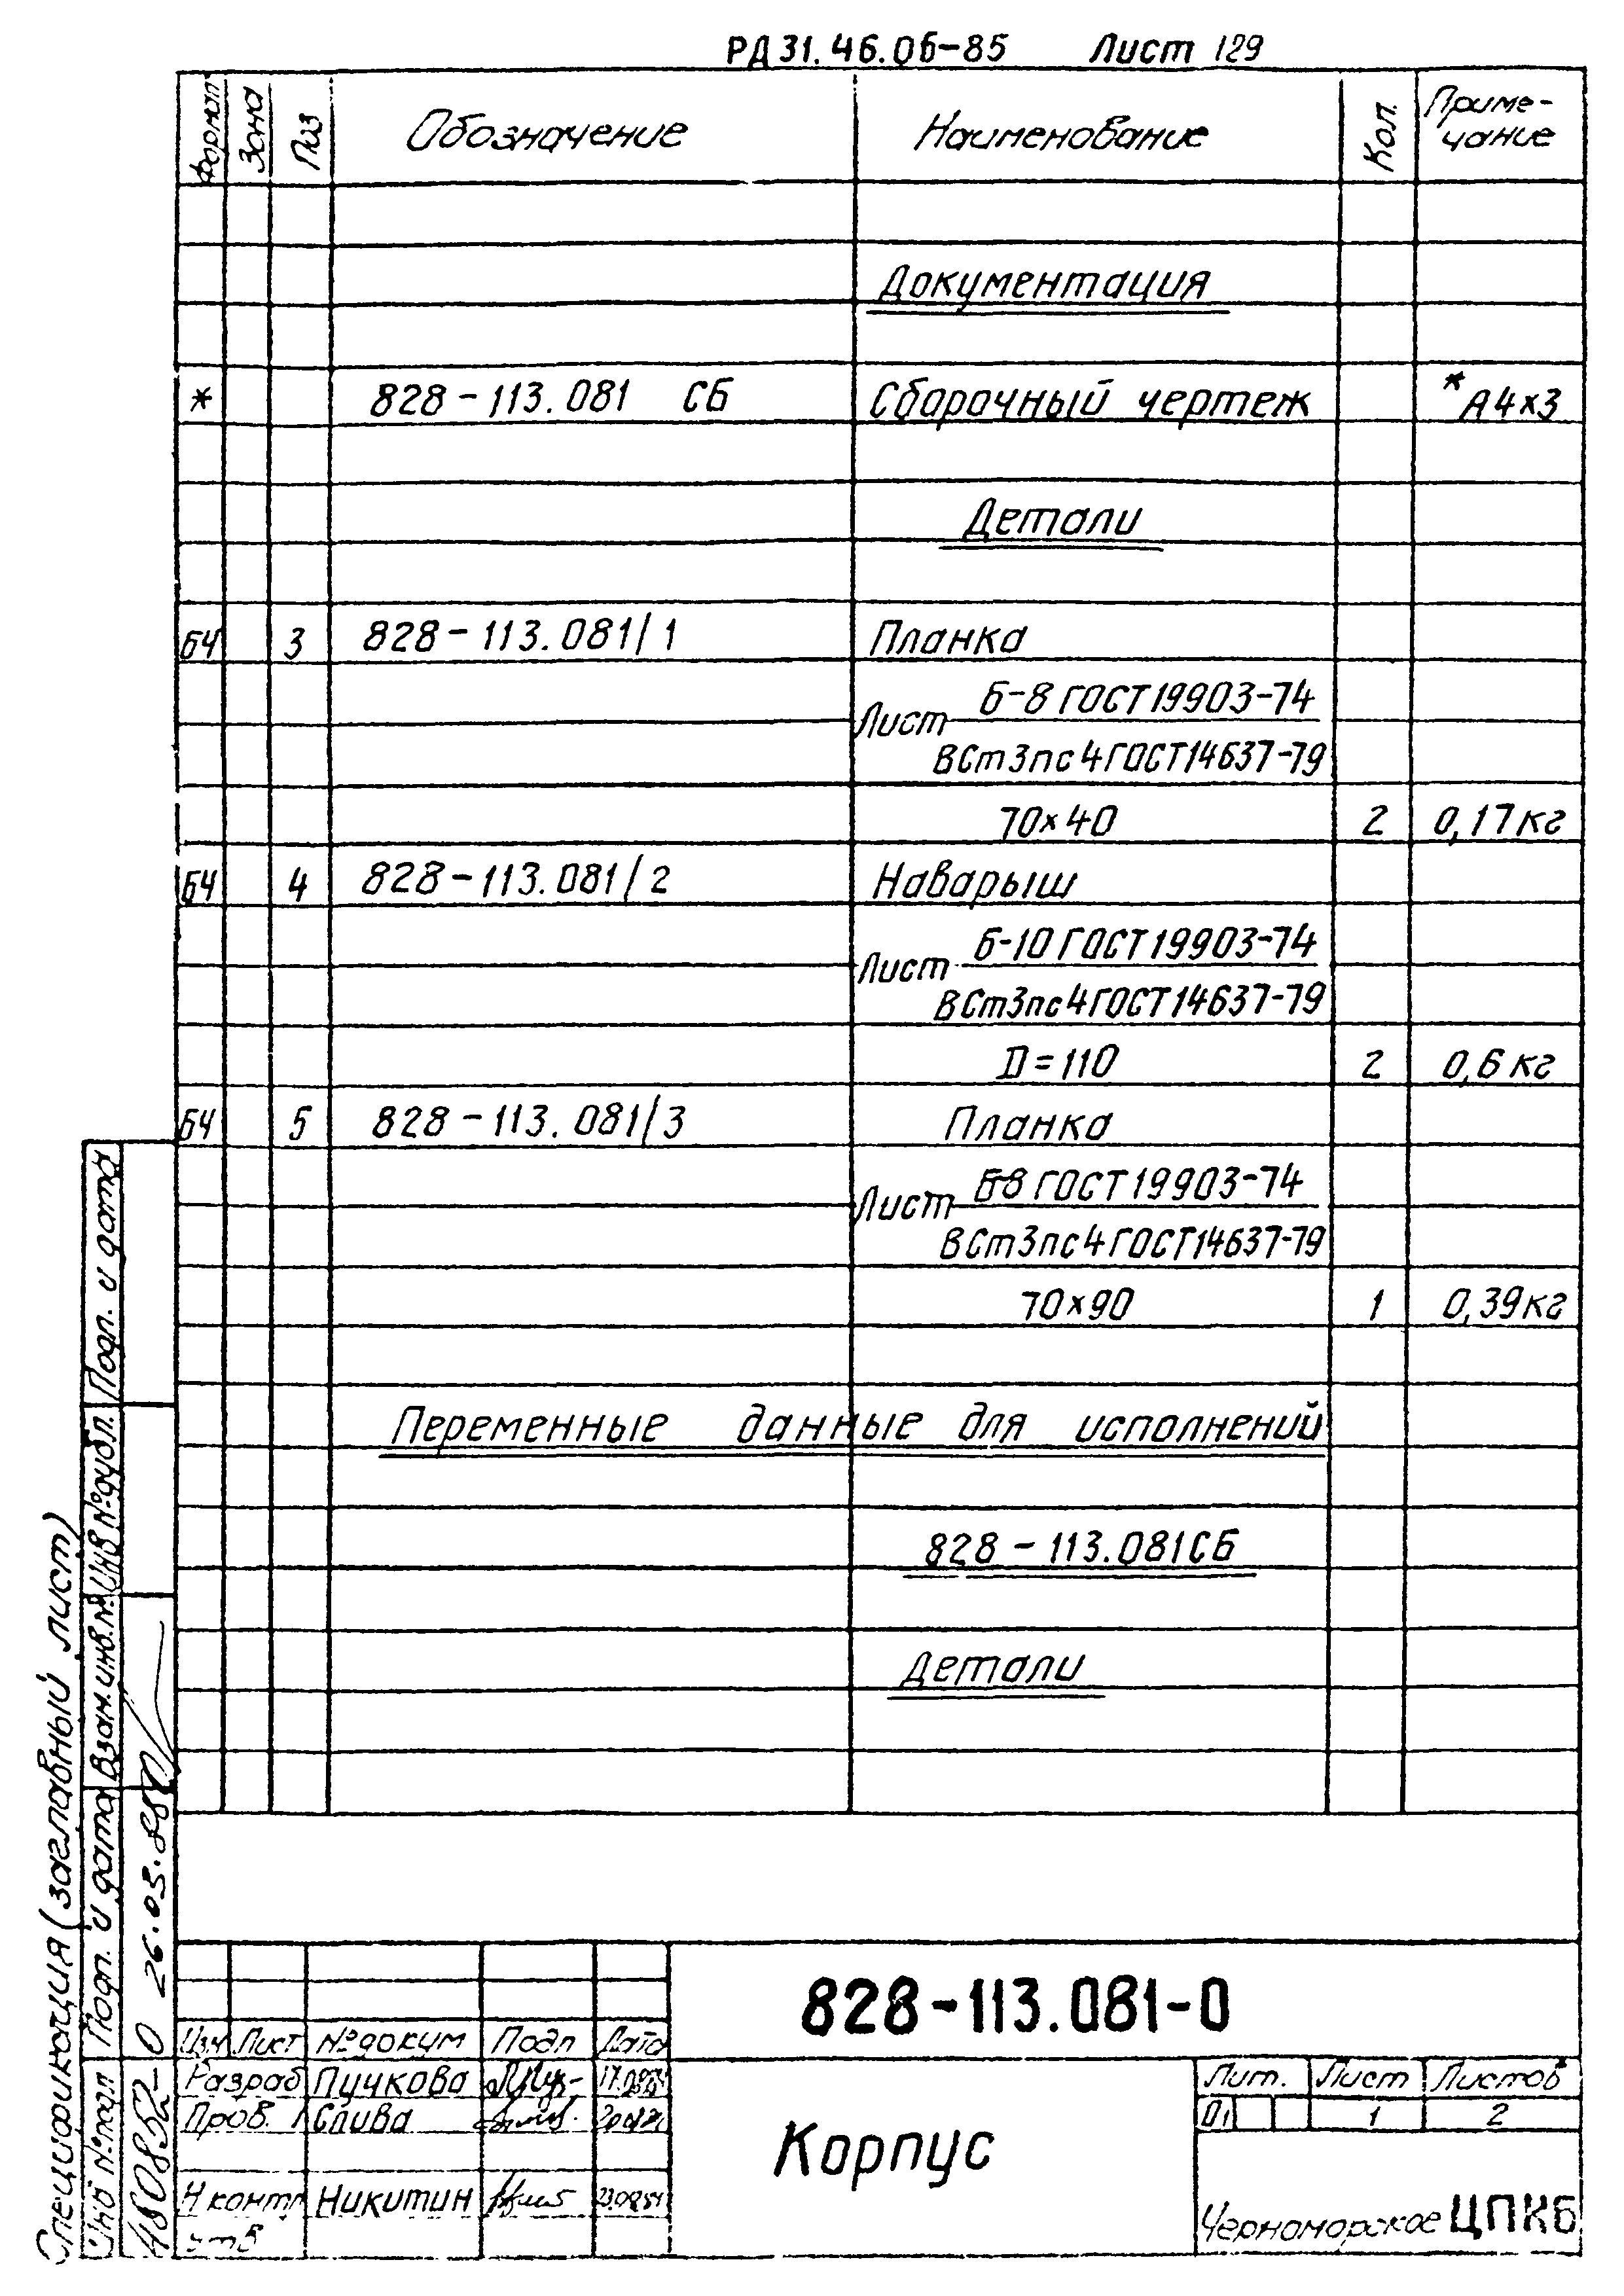 РД 31.46.06-85 Лист 129
Формат Зона Поз Обозначение Наименование Кол. Приме-
чание
Документация
* 828-113.081 СБ Сборочный чертеж *А4х3
Детали
БЧ 3 828-113.081/1 Планка
Лист Б-8 ГОСТ 19903-74
ВСт3пс4 ГОСТ 14637-79
70×40 2 0,17кг
БЧ 4 828-113.081/2 Наварыш
Лист Б-10 ГОСТ 19903-74
ВСт3пс4 ГОСТ 14637-79
D=110 2 0,6 кг
БЧ 5 828-113.081/3 Планка
Лист Б-8 ГОСТ 19903-74
ВСт3пс4 ГОСТ 14637-79
70×90 1 0,39кг
Переменные данные для исполнений
828-113.081СБ
Детали
Спецификация (заглавный лист)
Подп. и дата
Инв №дубл.
Взам.инв.№
Подп. и дата
Инв №подл
828-113.081-0
Изм Лист №докум Подп Дата
Разраб Пучкова
Пров. Слива
Н контр Никитин
утв
Корпус
Лит. Лист Листов
1 2
Черноморское ЦПКБ